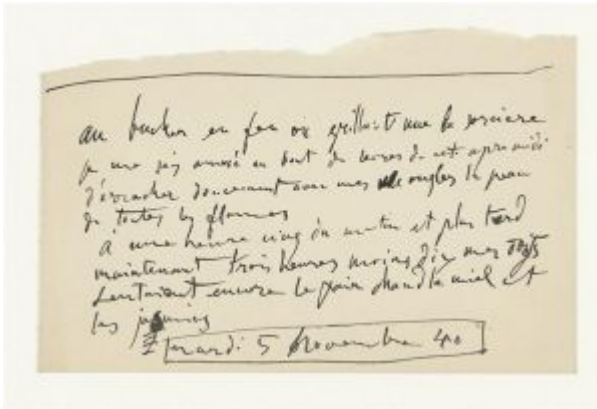 au bucher en feu où grillait nue la sorcière
je me suis amusé au bout de cet après midi
d'arracher doucement avec mes ongles la peau
de toutes les flammes
à une heure cinq du matin et plus tard
maintenant trois heures moins dix mes doigts
sentaient encore le pain chaud le miel et
les jasmins
mardi 5 novembre 40